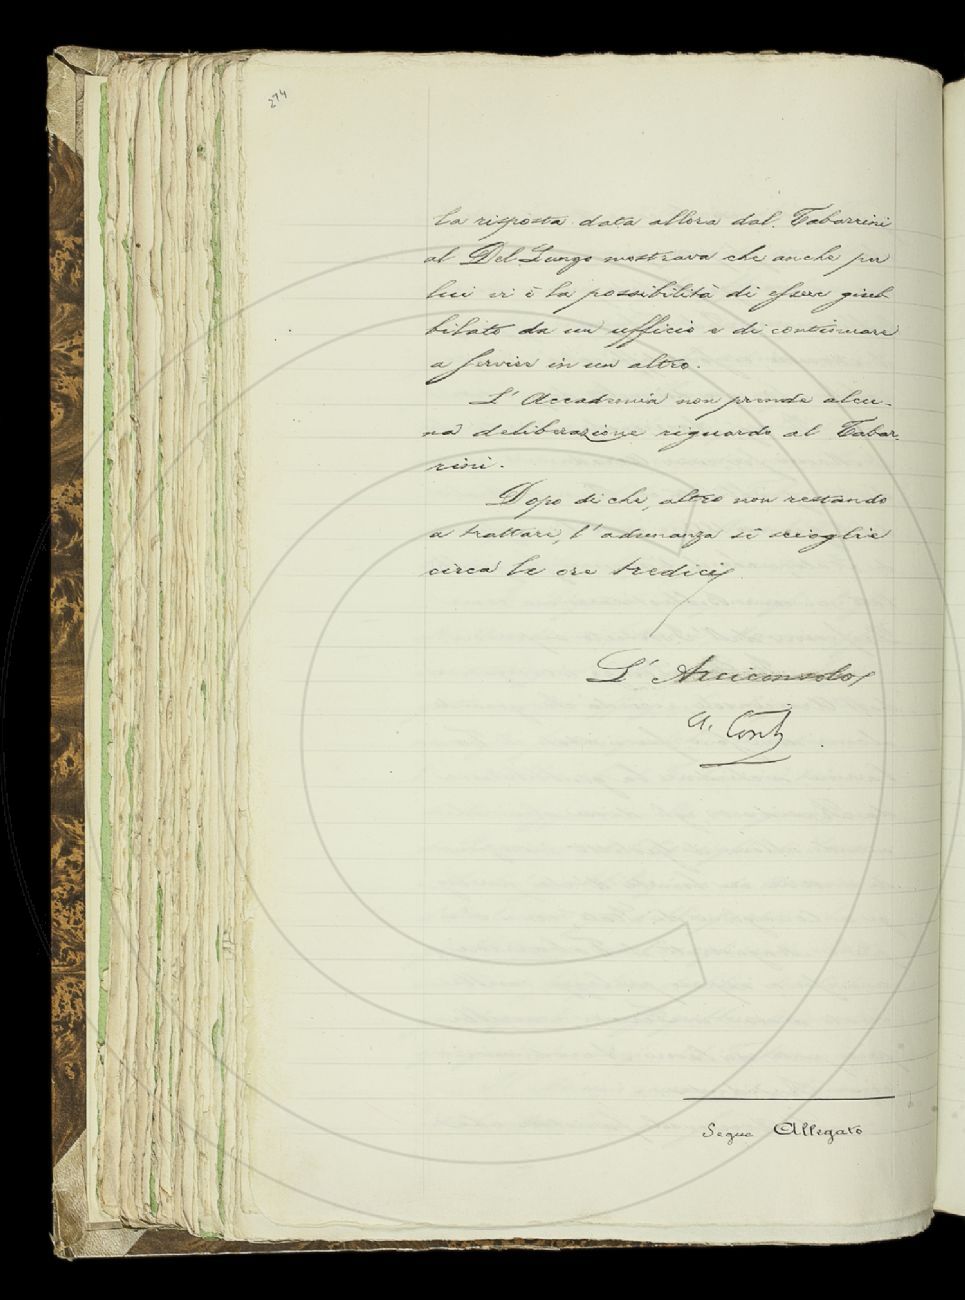 274
la risposta data allora dal Tabarrini
al Del Lungo mostrava che anche per
lui vi è la possibilità di essere giub-
bilato da un ufficio e di continuare
a servire in un altro.
L'Accademia non prende alcu-
na deliberazione riguardo al Tabar-
rini.
Dopo di che, altro non restando
a trattare, l'adunanza si scioglie
circa le ore tredici
L'Arciconsolo
A. Conti
Segue Allegato